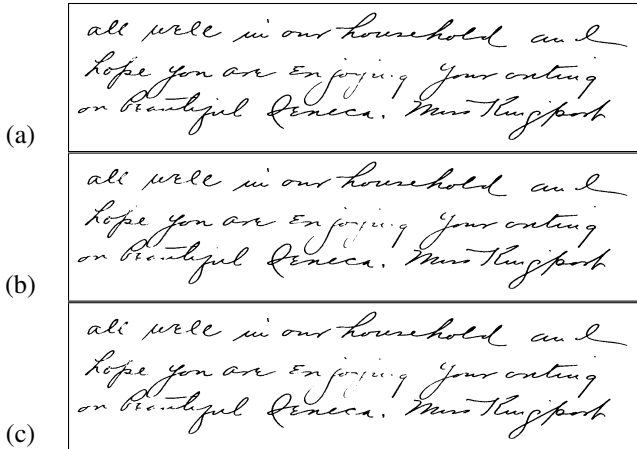 all well in our household and
hope you are enjoying your outing
on beautiful Seneca. Miss Kingport
(a)
all well in our household and
hope you are enjoying your outing
on beautiful Seneca. Miss Kingport
(b)
all well in our household and
hope you are enjoying your outing
on beautiful Seneca. Miss Kingport
(c)